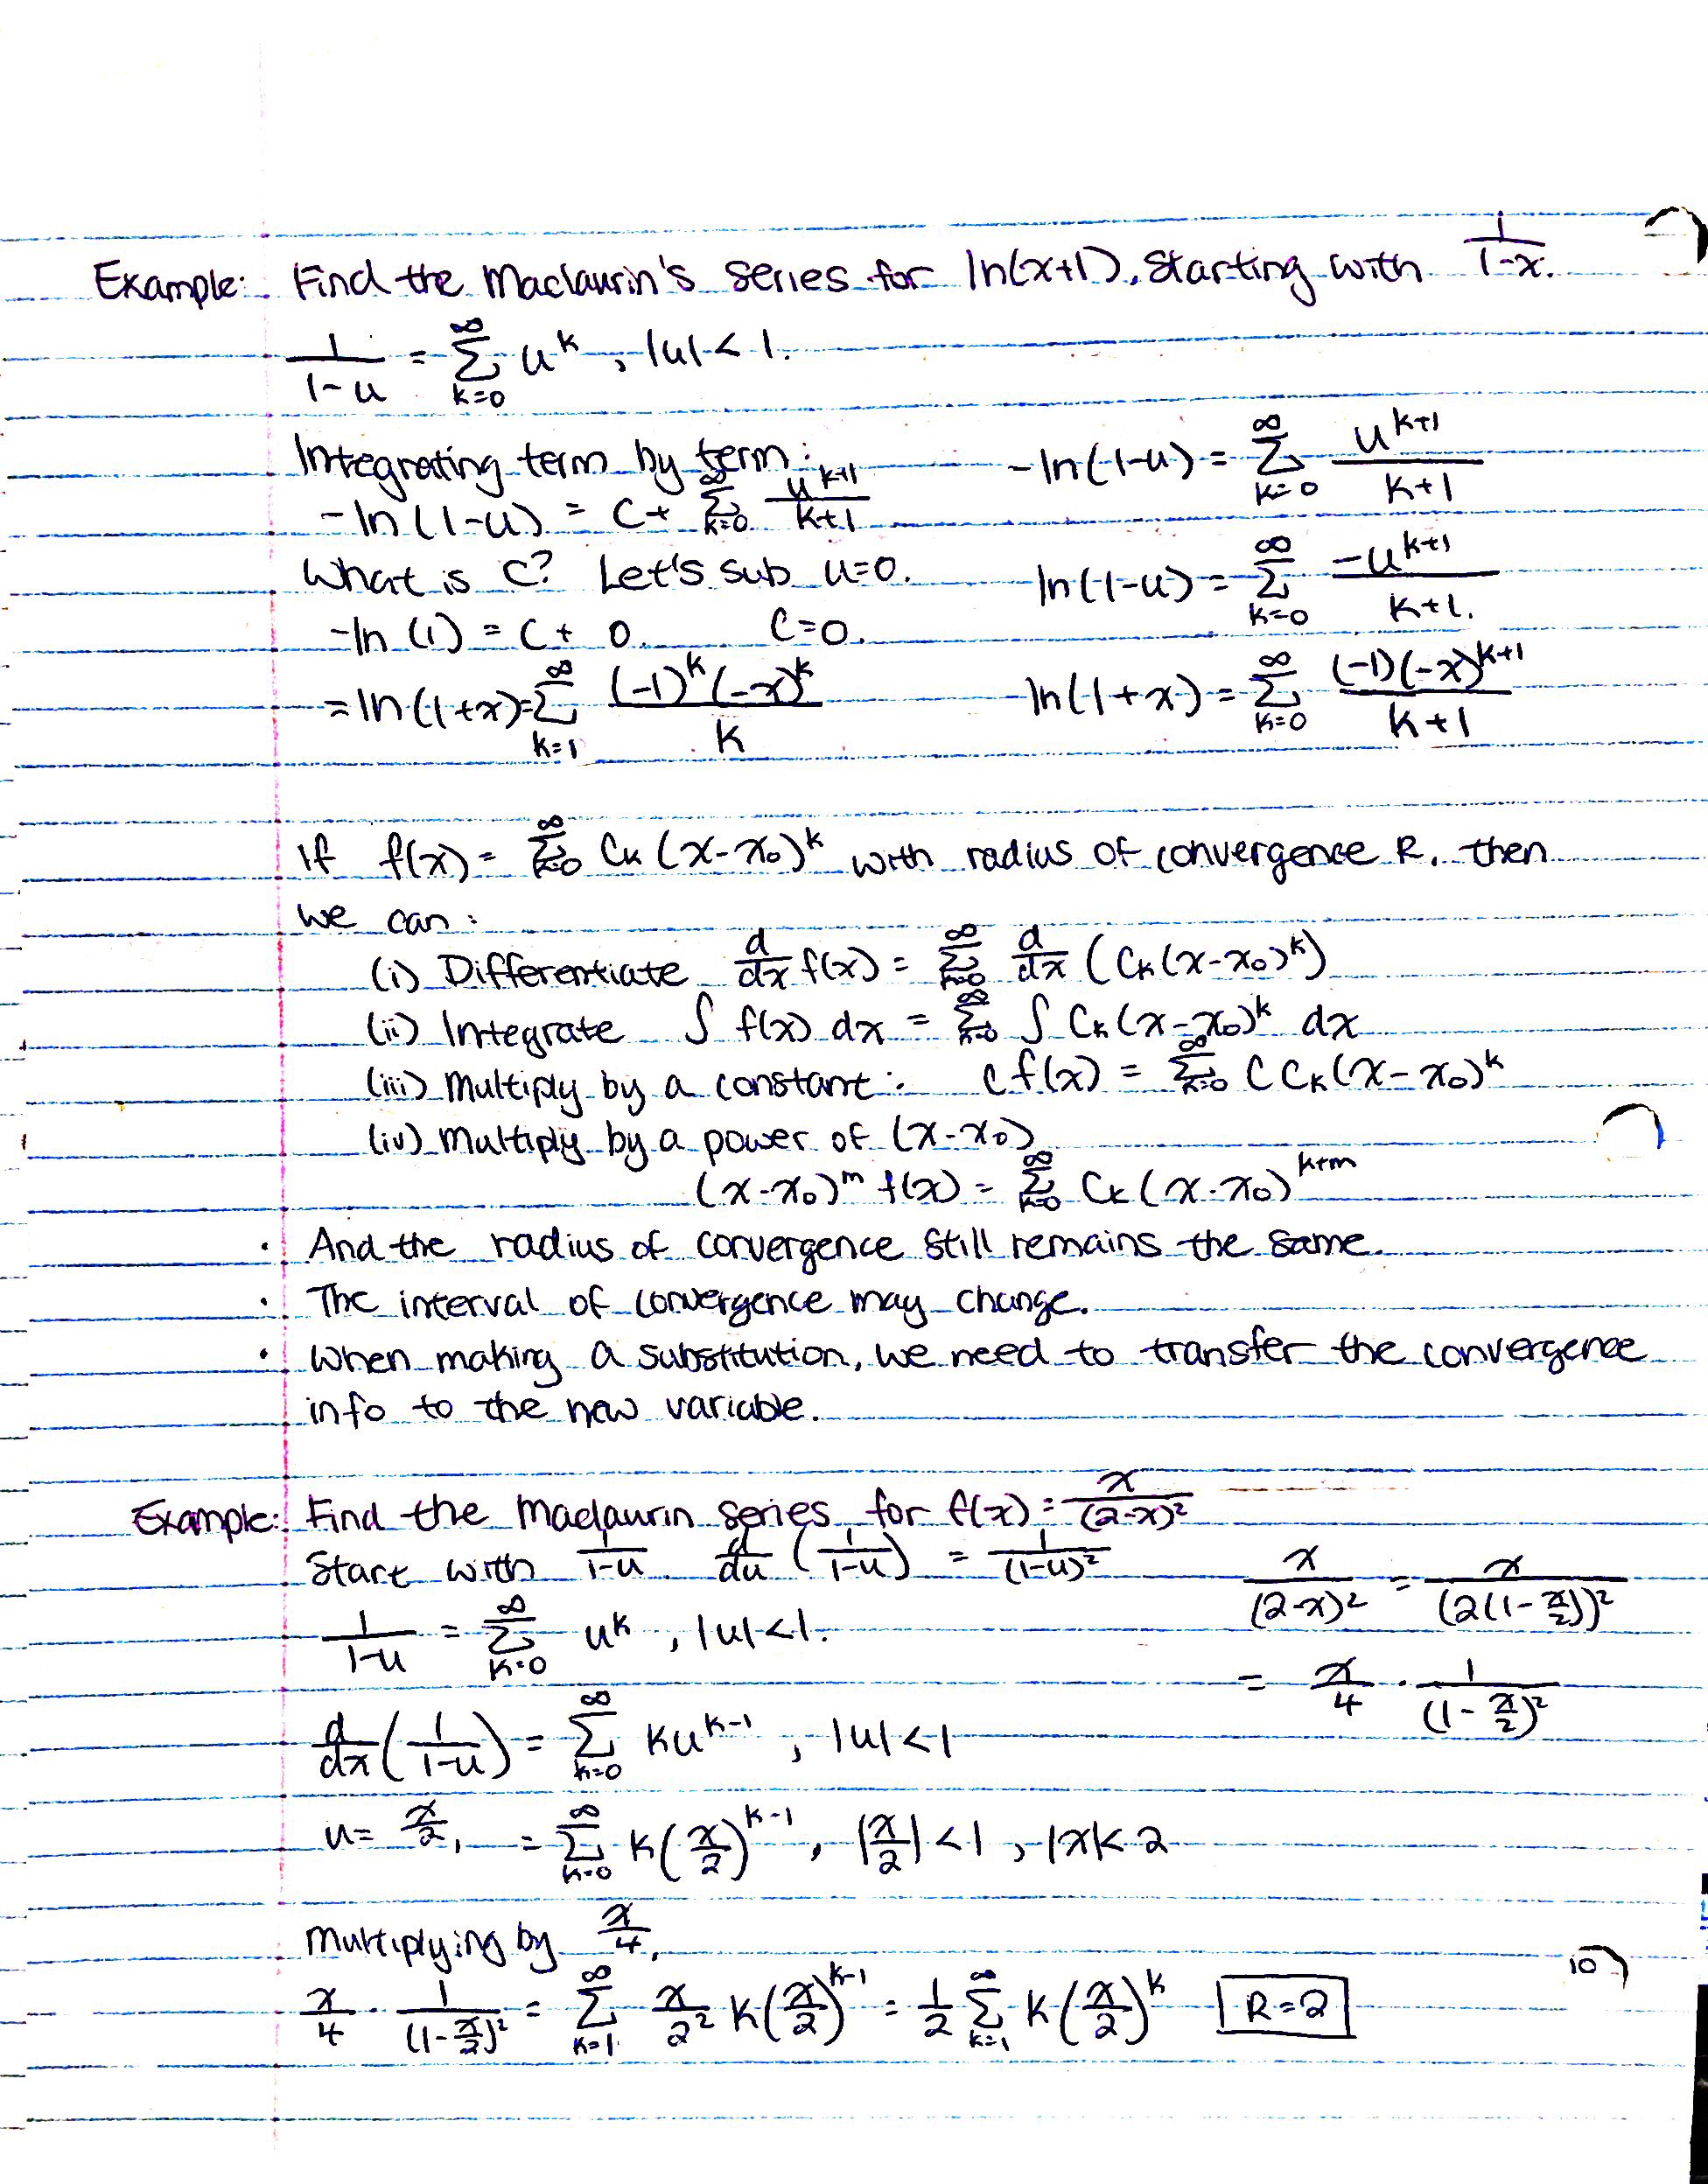 Example: Find the Maclaurin's series for ln(x+1), starting with 1/(1-x).
1/(1-u) = ∑_{k=0}^{∞} u^k, |u| < 1.
Integrating term by term:
-ln(1-u) = C + ∑_{k=0}^{∞} u^{k+1}/(k+1)
-ln(1-u) = ∑_{k=0}^{∞} u^{k+1}/(k+1)
What is C? Let's sub u=0.
ln(1-u) = ∑_{k=0}^{∞} -u^{k+1}/(k+1).
-ln(1) = C + 0. C=0.
= ln(1+x) = ∑_{k=1}^{∞} (-1)^k(-x)^k/k
ln(1+x) = ∑_{k=0}^{∞} (-1)(-x)^{k+1}/(k+1)
If f(x) = ∑_{k=0}^{∞} C_k(x-x_0)^k with radius of convergence R, then
we can:
(i) Differentiate d/dx f(x) = ∑_{k=0}^{∞} d/dx (C_k(x-x_0)^k)
(ii) Integrate ∫ f(x) dx = ∑_{k=0}^{∞} ∫ C_k(x-x_0)^k dx
(iii) Multiply by a constant: c f(x) = ∑_{k=0}^{∞} C C_k(x-x_0)^k
(iv) Multiply by a power of (x-x_0)
(x-x_0)^m f(x) = ∑_{k=0}^{∞} C_k(x-x_0)^{k+m}
· And the radius of convergence still remains the same.
· The interval of convergence may change.
· When making a substitution, we need to transfer the convergence
info to the new variable.
Example: Find the Maclaurin series for f(x) = x/(2-x)^2
Start with 1/(1-u). d/du (1/(1-u)) = 1/(1-u)^2
x/(2-x)^2 = x/(2(1-x/2))^2
1/(1-u) = ∑_{k=0}^{∞} u^k, |u|<1.
= x/4 · 1/(1-x/2)^2
d/dx (1/(1-u)) = ∑_{k=0}^{∞} ku^{k-1}, |u|<1
u = x/2, = ∑_{k=0}^{∞} k(x/2)^{k-1}, |x/2|<1, |x|<2
Multiplying by x/4,
x/4 · 1/(1-x/2)^2 = ∑_{k=1}^{∞} x/2^2 k(x/2)^{k-1} = 1/2 ∑_{k=1}^{∞} k(x/2)^k R=2
10